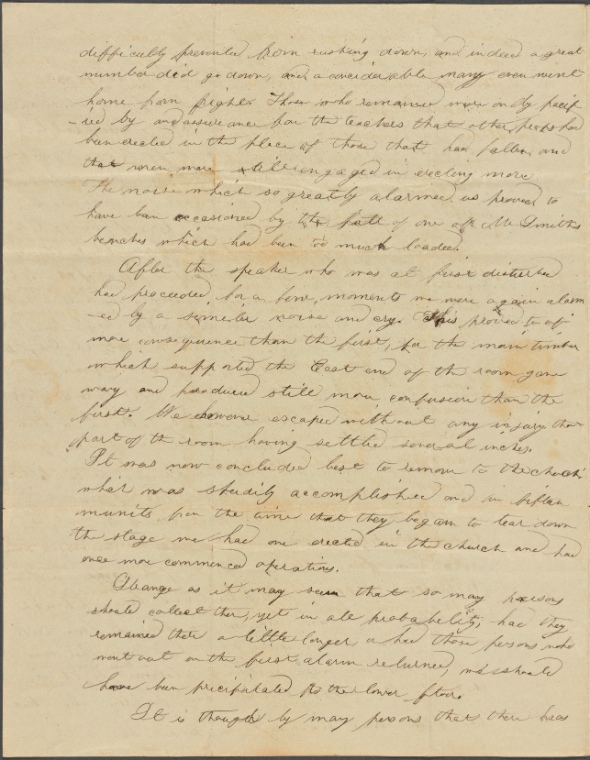 difficultly prevented from rushing down, and indeed a great
number did go down, and a considerable many even went
home from fright. Those who remained were only pacif
-ied by and assurance from the teachers that other posts had
been erected in the place of those that had fallen and
that men were still engaged in erecting more
The noise which so greatly alarmed us proved to
have been occasioned by the fall of one of Mr Smiths
benches which had been to much loaded.
After the speaker who was at first disturbed
had proceeded, for a few, moments we were again alarm
-ed by a similar noise and cry. This proved to of
more consequence than the first, for the main timber
which supported the East end of the room gave
way and produced still more confusion than the
first. We however escaped without any injury that
part of the room having settled several inches.
It was now concluded best to remove to the church
what was steadily accomplished and in fifteen
munits from the time that they began to tear down
the stage we had one erected in the church and had
once more commenced operations.
Strange as it may seem that so may persons
should collect there, yet in all probability, had they
remained there a little longer, a had those persons, who
went out on the first, alarm returned, we should
have been precipitated to the lower floor.
It is though by may persons that there was